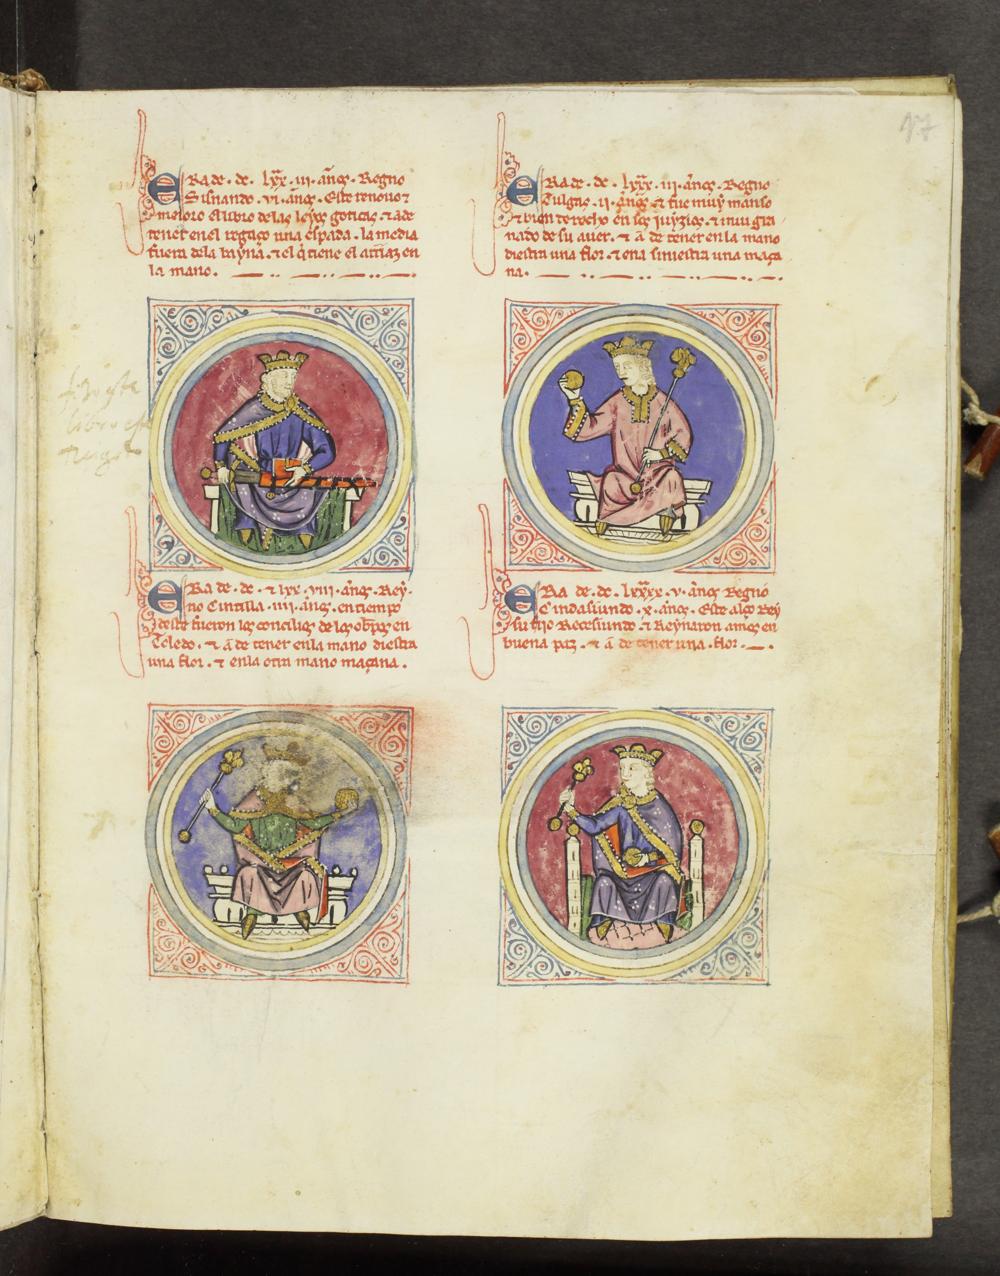 17
Era de .dc. lxx .iii. años. Regno
Sisnando .vi. años. Este renouo τ
meioro el libro de las leyes goticas. τ a de
tener en el regaço una espada. la media
fuera dela bayna. τ el q̃ tiene el arriaz en
la mano.
Era de .dc. τ lxx .viii. años. Rey-
no Cintilla .iiii. años. en tiempo
deste fueron los concilios de los obp̃os en
Toledo. τ a de tener en la mano diestra
una flor. τ en la otra mano maçana.
Era de .dc. lxxx .iii. años. Regno
Tulgas .ii. años. τ fue muy manso
τ bien derecho en sos juyzios. τ muy gra
nado de su auer. τ a de tener en la mano
diestra una flor. τ en a siniestra una maça
na.
Era de .dc. lxxxx .v. años Regno
Cindasundo .x. años. Este alço Rey
su fijo Recesundo. τ Reynaron amos en
buena paz. τ a de tener una .flor.
libro